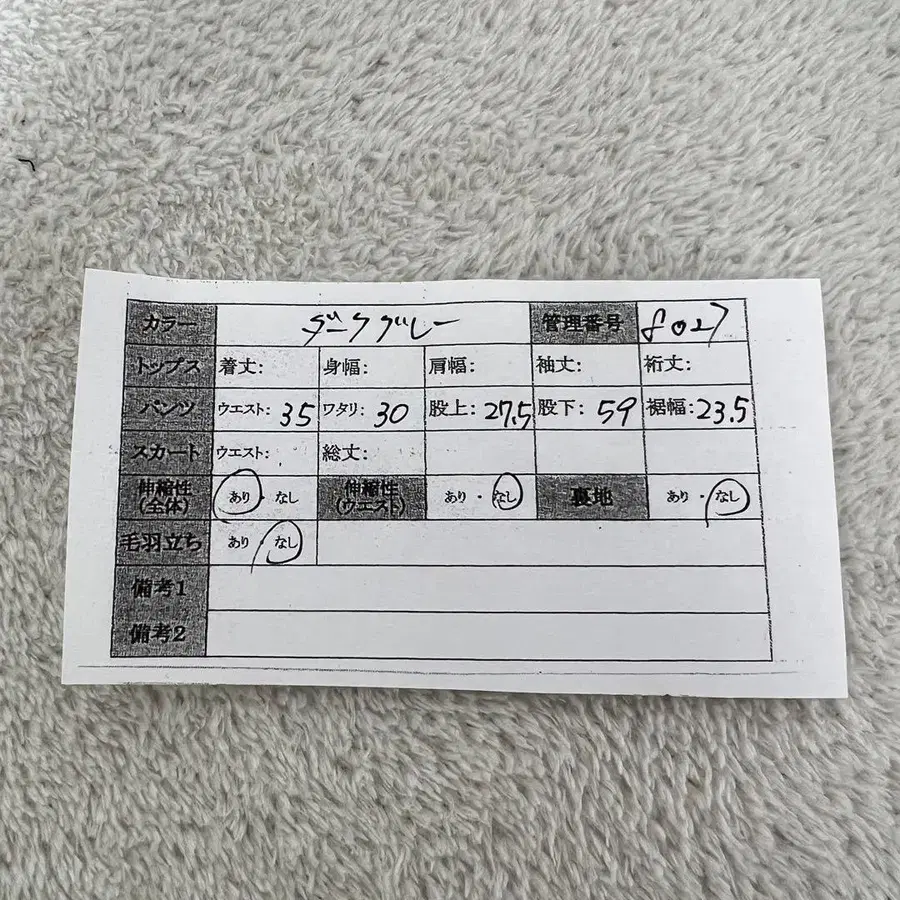 カラー ダークグレー 管理番号 8027
トップス 着丈: 身幅: 肩幅: 袖丈: 裄丈:
パンツ ウエスト: 35 ワタリ: 30 股上: 27.5 股下: 59 裾幅: 23.5
スカート ウエスト: 総丈:
伸縮性(全体) あり・なし 伸縮性(ウエスト) あり・なし 裏地 あり・なし
毛羽立ち あり・なし
備考1
備考2